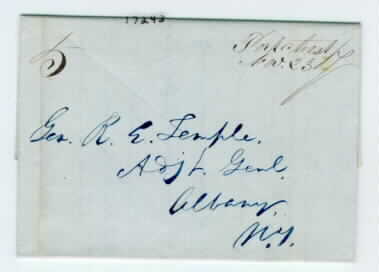 17242
5
Nov. 23
Gen. R. E. Temple.
Adjt. Genl.
Albany.
N.Y.